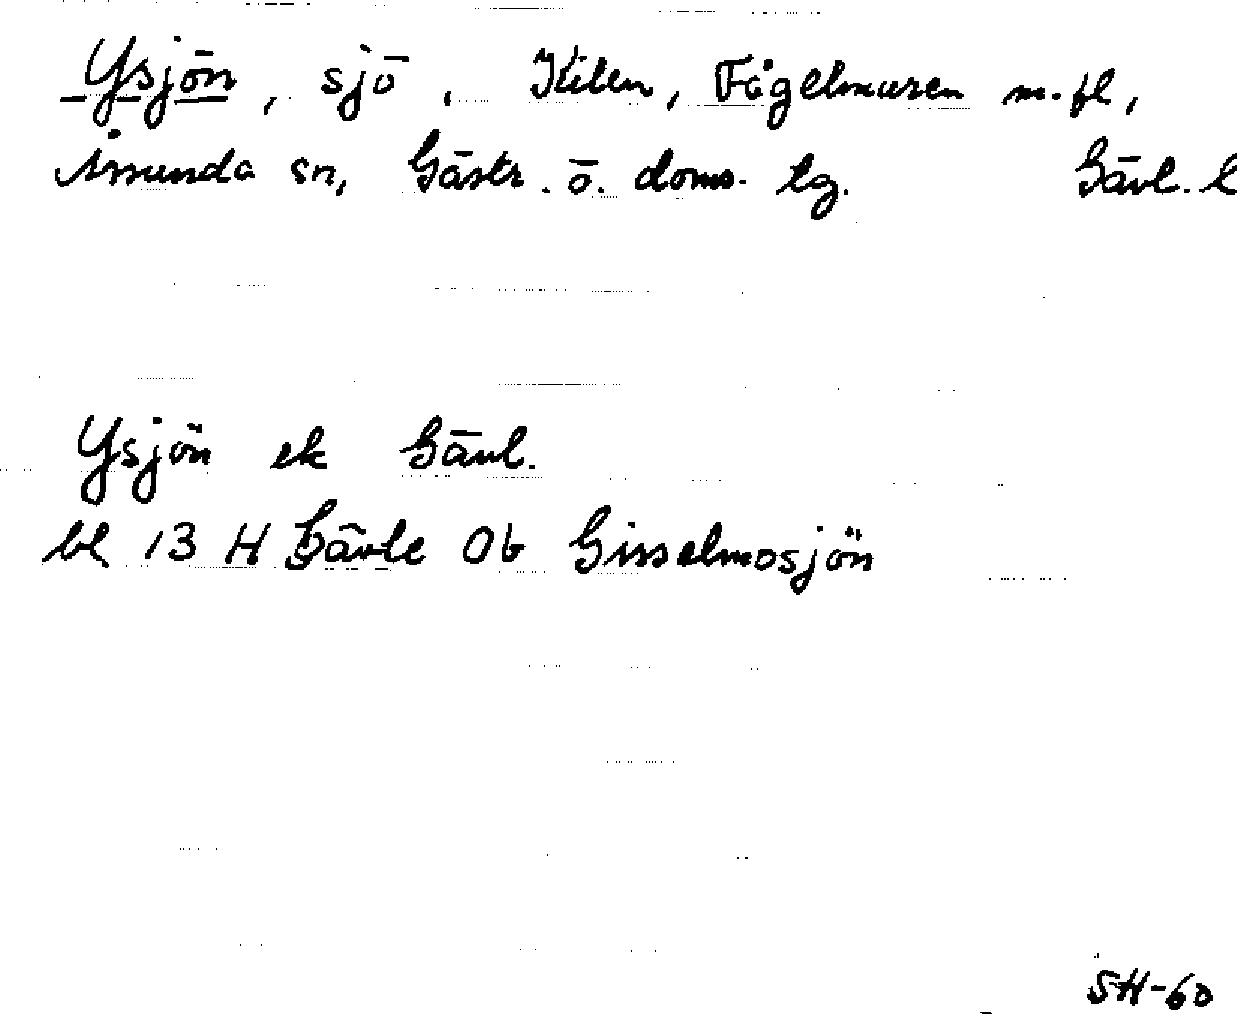 Ysjön, sjö, Kilen, Fågelmuren m.fl,
Årsunda sn, Gästr. ö. doms. lg. Gävl. l
Ysjön ek Gävl.
bl 13 H Gävle Ob Gisselmosjön
SH-60